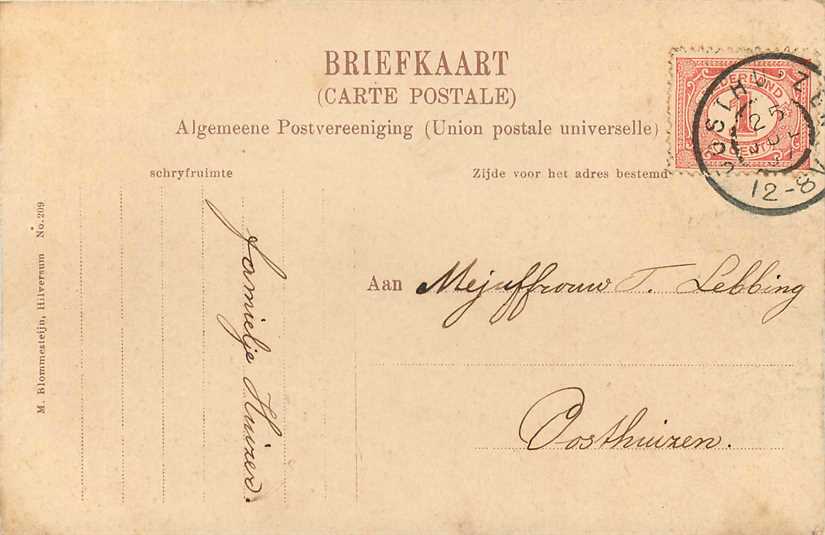 BRIEFKAART
(CARTE POSTALE)
Algemeene Postvereeniging (Union postale universelle)
schryfruimte
Zijde voor het adres bestemd
Aan Mejuffrouw T. Lebbing
Oosthuizen.
familje Huizer.
M. Blommesteijn, Hilversum No. 209
NEDERLAND
1
CENT
25
12-8